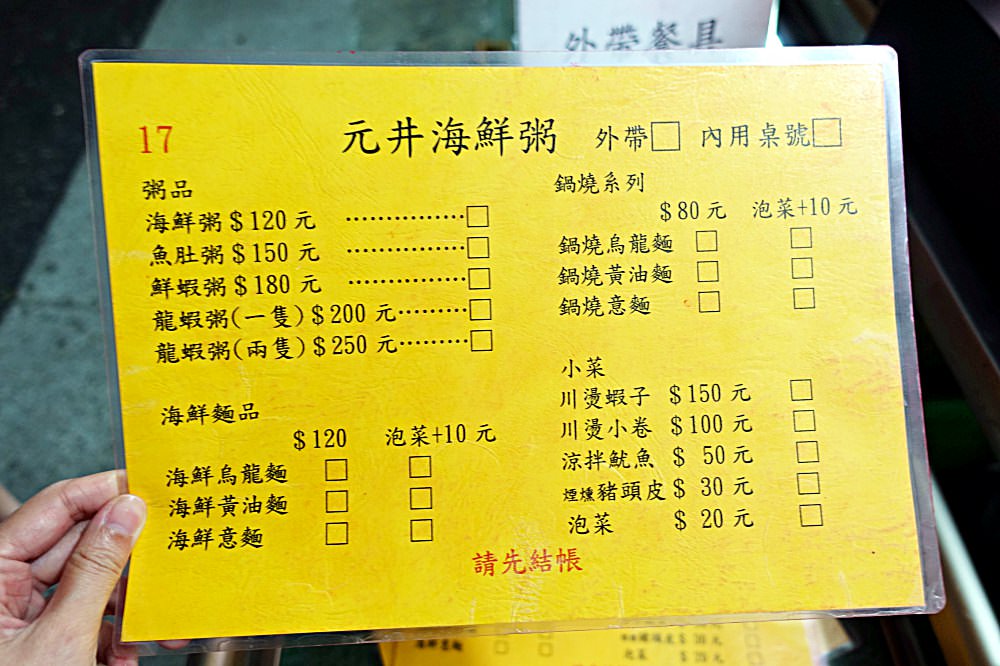 外帶餐具
17
元井海鮮粥 外帶□ 內用桌號□
粥品
海鮮粥$120元 ……………□
魚肚粥$150元 ……………□
鮮蝦粥$180元 ……………□
龍蝦粥(一隻)$200元………□
龍蝦粥(兩隻)$250元………□
海鮮麵品
$120 泡菜+10元
海鮮烏龍麵 □ □
海鮮黃油麵 □ □
海鮮意麵 □ □
鍋燒系列
$80元 泡菜+10元
鍋燒烏龍麵 □ □
鍋燒黃油麵 □ □
鍋燒意麵 □ □
小菜
川燙蝦子 $150元 □
川燙小卷 $100元 □
涼拌魷魚 $ 50元 □
煙燻豬頭皮$ 30元 □
泡菜 $ 20元 □
請先結帳
海鮮意麵 □ □
豬頭皮$ 30元 □
泡菜 $ 20元 □